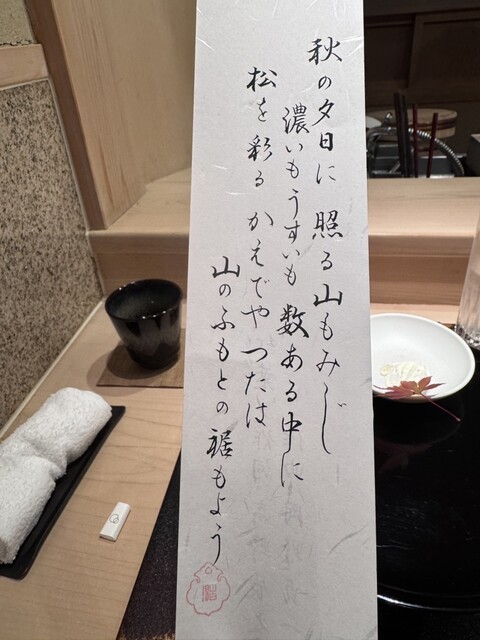 秋の夕日に 照る山もみじ
濃いもうすいも 数ある中に
松を彩る かえでやつたは
山のふもとの 裾もよう